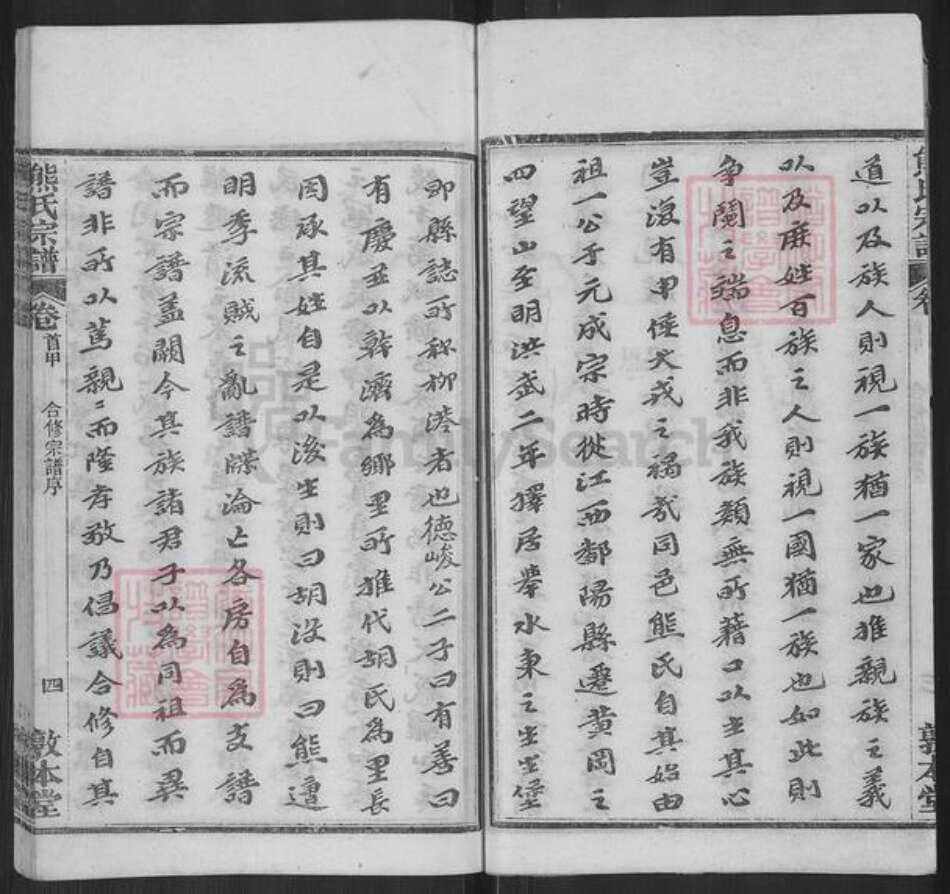 道以及族人則視一族猶一家也推親族之義
以及厥姓百族之人則視一國猶一族也如此則
爭鬩之端息而非我族類無所藉口以生其心
豈復有甲侵犬戎之禍哉同邑熊氏自其始由
祖一公于元成宗時從江西鄱陽縣遷黃岡之
四望山至明洪武二年擇居舉水東之生生堡
即縣誌所称柳港者也德峻公二子曰有善曰
有慶並以幹濟為鄉里所推代胡氏為里長
因承其姓自是以後生則曰胡沒則曰熊遭
明季流賊之亂譜牒淪亡各房自為支譜
而宗譜蓋闕今其族諸君子以為同祖而異
譜非所以篤親親而隆孝敬乃倡議合修自其
熊氏宗譜
卷首甲
合修宗譜序
四
敦本堂
FamilySearch